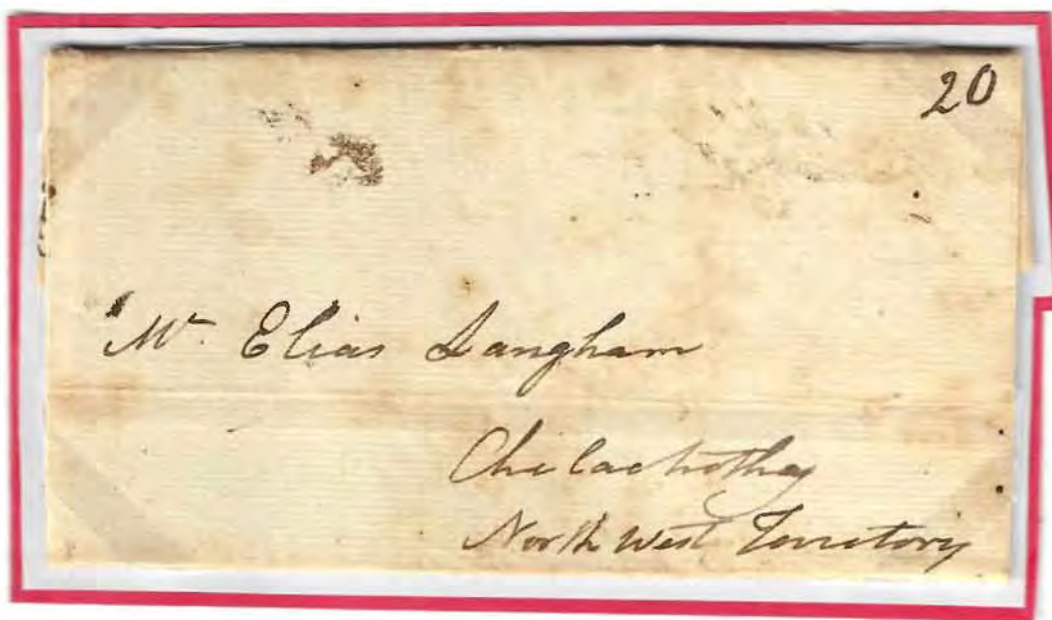 20
Mr. Elias Langham
Chilachothey
North West Territory